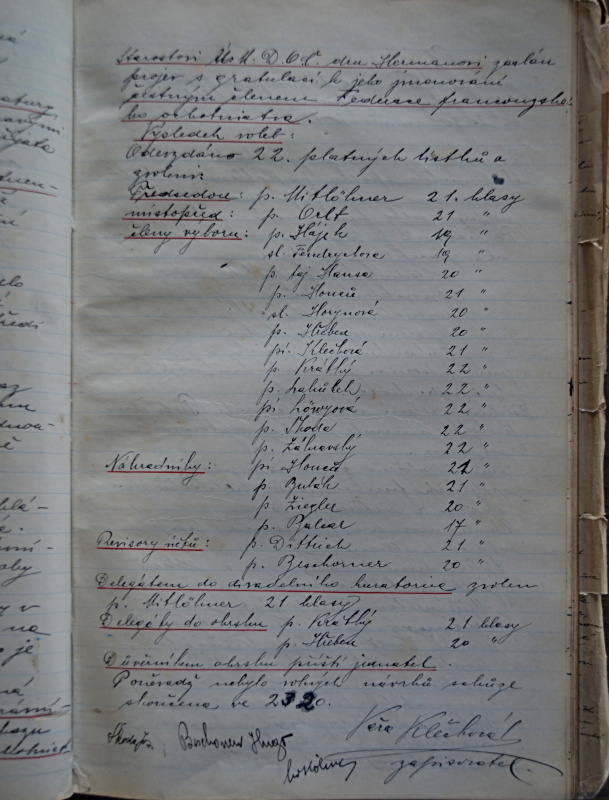 Starostovi Úst. D.O.Č. dru Hermanovi zaslán
projev s gratulací k jeho jmenování
čestným členem Federace francouzské-
ho ochotnictva.
Výsledek voleb:
Odevzdáno 22. platných lístků a
zvoleni:
Předsedou: p. Mitlöhner 21. hlasy
místopřed: p. Orlt 21 "
členy výboru: p. Hájek 19 "
sl. Fendrychova 19 "
p. taj. Hansa 20 "
p. Honců 21 "
sl. Horynová 20 "
p. Hřeben 20 "
pí. Klečková 21 "
p. Krátký 22 "
p. 22 "
pí. Löwyová 22 "
p. Škoda 22 "
p. 22 "
Náhradníky: pí Honců 21 "
p. Bulák 21 "
p. Ziegler 20 "
p. Balcar 17 "
Revisory účtů: p. Dittrich 21 "
p. Beschorner 20 "
Delegátem do divadelního kuratoria zvolen
p. Mitlöhner 21 hlasy
Delegáty do okrsku p. Krátký 21 hlasy
p. Hřeben 20 "
Důvěrníkem okrsku příští jednatel.
Poněvadž nebylo volných návrhů schůze
skončena ve 2320.
Beschorner Hugo
Věra Klečková
zapisovatel.